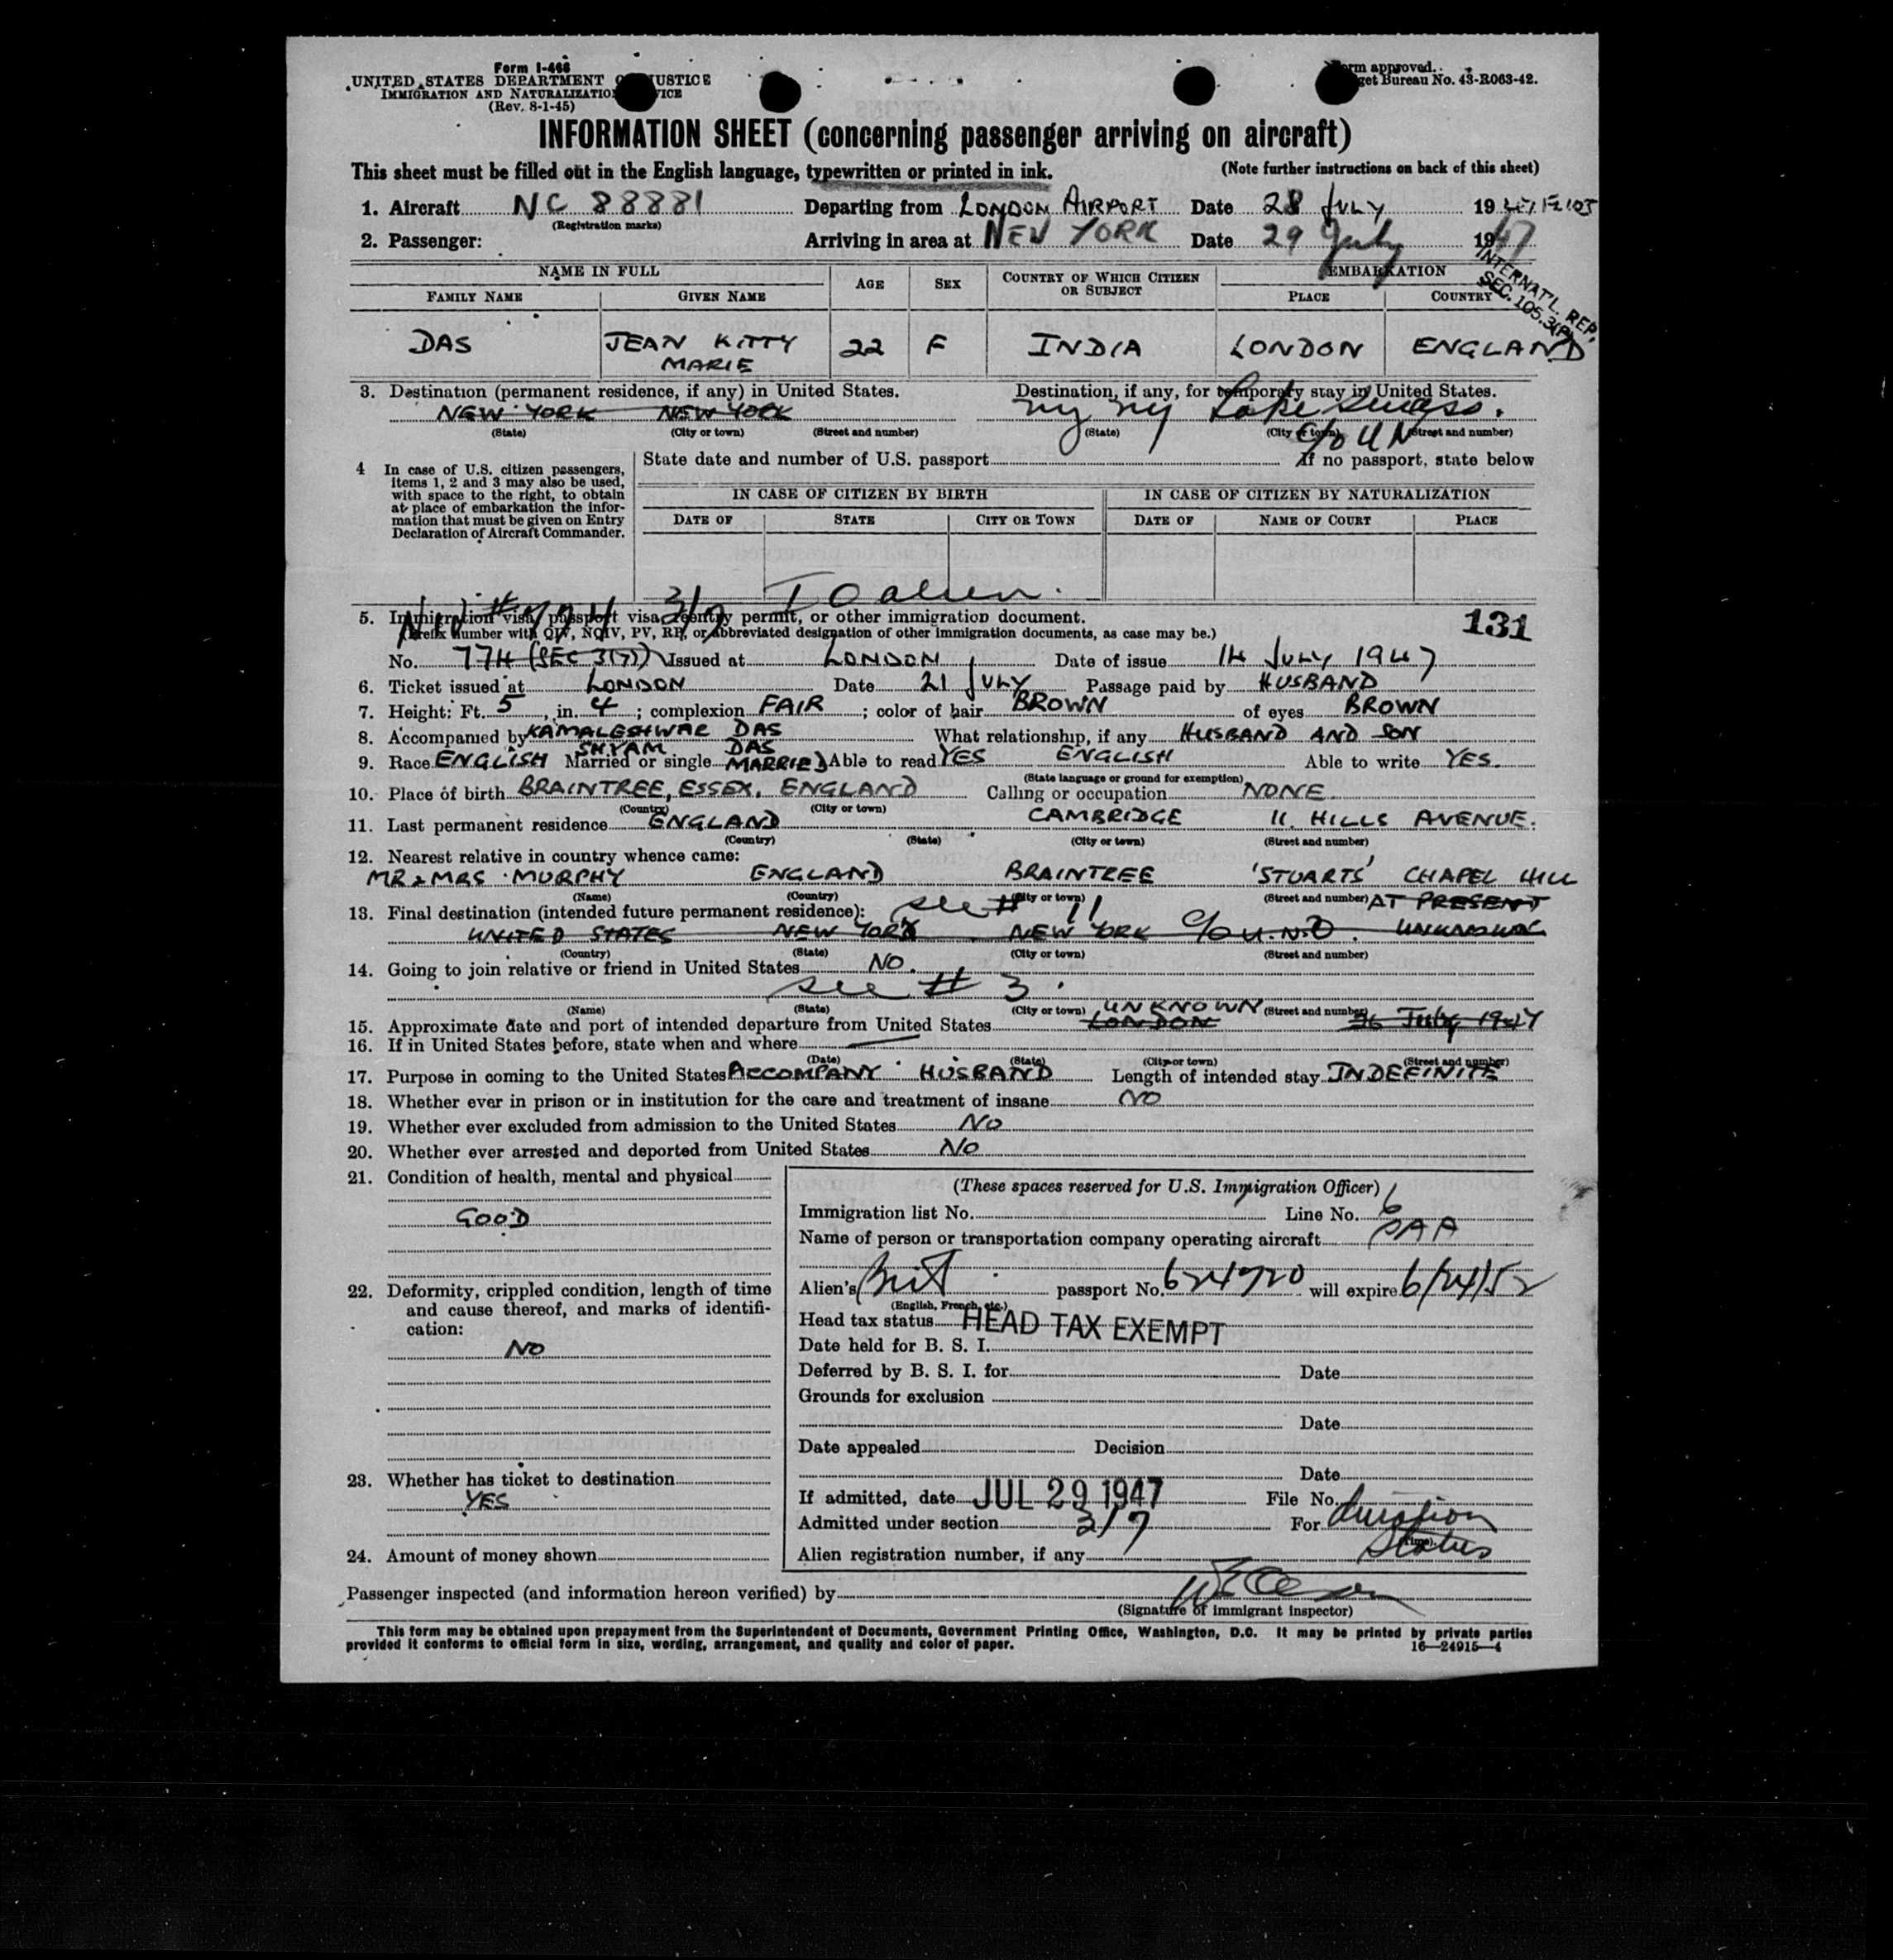 Form I-466
UNITED STATES DEPARTMENT OF JUSTICE
IMMIGRATION AND NATURALIZATION SERVICE
(Rev. 8-1-45)
Form approved.
Budget Bureau No. 43-R063-42.
INFORMATION SHEET (concerning passenger arriving on aircraft)
This sheet must be filled out in the English language, typewritten or printed in ink. (Note further instructions on back of this sheet)
1. Aircraft NC 88881 Departing from LONDON AIRPORT Date 28 JULY 19 47
(Registration marks)
2. Passenger: Arriving in area at NEW YORK Date 29 July 1947
INTERNAT'L. REP.
SEC. 105.3(P)
NAME IN FULL AGE SEX COUNTRY OF WHICH CITIZEN OR SUBJECT EMBARKATION
FAMILY NAME GIVEN NAME PLACE COUNTRY
DAS JEAN KITTY MARIE 22 F INDIA LONDON ENGLAND
3. Destination (permanent residence, if any) in United States. Destination, if any, for temporary stay in United States.
NEW YORK NEW YORK ny ny Lake Success.
(State) (City or town) (Street and number) (State) (City or town) (Street and number)
c/o UN
4 In case of U.S. citizen passengers, items 1, 2 and 3 may also be used, with space to the right, to obtain at place of embarkation the information that must be given on Entry Declaration of Aircraft Commander.
State date and number of U.S. passport If no passport, state below
IN CASE OF CITIZEN BY BIRTH IN CASE OF CITIZEN BY NATURALIZATION
DATE OF STATE CITY OR TOWN DATE OF NAME OF COURT PLACE
IO alien.
3/7
5. Immigration visa, passport visa, reentry permit, or other immigration document. 131
(Prefix number with QIV, NQIV, PV, RP, or abbreviated designation of other immigration documents, as case may be.)
No. 774 (SEC 3(7)) Issued at LONDON Date of issue 14 JULY 1947
6. Ticket issued at LONDON Date 21 JULY Passage paid by HUSBAND
7. Height: Ft. 5, in. 4; complexion FAIR; color of hair BROWN of eyes BROWN
8. Accompanied by KAMALESHWAR DAS What relationship, if any HUSBAND AND SON
SHYAM DAS
9. Race ENGLISH Married or single MARRIED Able to read YES ENGLISH Able to write YES.
(State language or ground for exemption)
10. Place of birth BRAINTREE, ESSEX, ENGLAND Calling or occupation NONE
(Country) (City or town)
11. Last permanent residence ENGLAND CAMBRIDGE 11, HILLS AVENUE.
(Country) (State) (City or town) (Street and number)
12. Nearest relative in country whence came:
MR & MRS MURPHY ENGLAND BRAINTREE 'STUARTS' CHAPEL HILL
(Name) (Country) (City or town) (Street and number)
13. Final destination (intended future permanent residence): see # 11 AT PRESENT
UNITED STATES NEW YORK NEW YORK C/O U.N.O. UNKNOWN
(Country) (State) (City or town) (Street and number)
14. Going to join relative or friend in United States NO.
see # 3
(Name) (State) (City or town) (Street and number)
15. Approximate date and port of intended departure from United States LONDON UNKNOWN 26 July 1947
16. If in United States before, state when and where
(Date) (State) (City or town) (Street and number)
17. Purpose in coming to the United States ACCOMPANY HUSBAND Length of intended stay INDEFINITE
18. Whether ever in prison or in institution for the care and treatment of insane NO
19. Whether ever excluded from admission to the United States NO
20. Whether ever arrested and deported from United States NO
21. Condition of health, mental and physical
GOOD
22. Deformity, crippled condition, length of time and cause thereof, and marks of identification:
NO
23. Whether has ticket to destination
YES
24. Amount of money shown
(These spaces reserved for U.S. Immigration Officer)
Immigration list No. Line No. 6
Name of person or transportation company operating aircraft PAA
Alien's Brit passport No. 624720 will expire 6/24/52
(English, French, etc.)
Head tax status HEAD TAX EXEMPT
Date held for B. S. I.
Deferred by B. S. I. for Date
Grounds for exclusion
Date
Date appealed Decision
Date
If admitted, date JUL 29 1947 File No.
Admitted under section 3/7 For duration status
(Time)
Alien registration number, if any
Passenger inspected (and information hereon verified) by
(Signature of immigrant inspector)
This form may be obtained upon prepayment from the Superintendent of Documents, Government Printing Office, Washington, D.C. It may be printed by private parties
provided it conforms to official form in size, wording, arrangement, and quality and color of paper. 16—24915-4